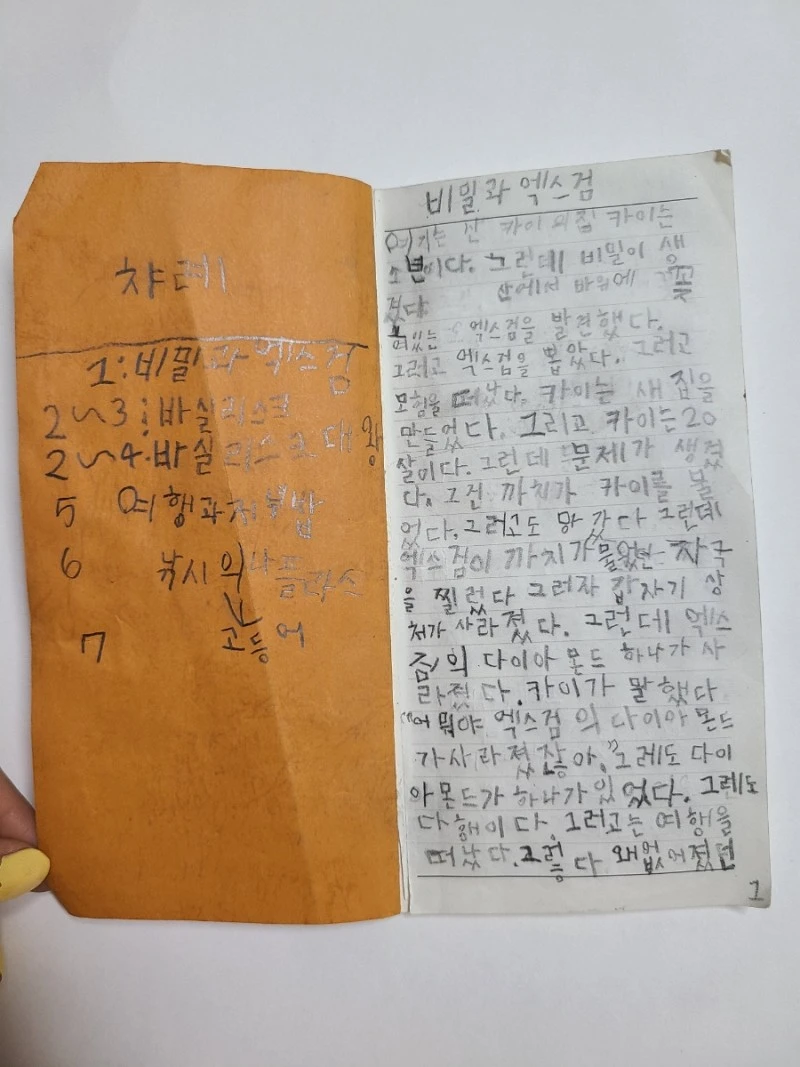 차례
1:비밀과 엑스검
2~3:바실리스크
2~4.바실리스크대왕
5 여행과
6 낚시의
고등어
7
비밀과 엑스검
여기는 산 카이의집 카이는
소년이다. 그런데 비밀이 생
겼다 산에서 바위에 꽂
혀있는 엑스검을 발견했다.
그러고 엑스검을 뽑았다. 그러고
모험을 떠났다. 카이는 새 집을
만들었다. 그리고 카이는20
살이다. 그런데 문제가 생겼
다. 그건 까치가 카이를 물
었다. 그러고도 망갔다 그런데
엑스검이 까치가 물었던 자국
을 찔렀다 그러자 갑자기 상
처가 사라졌다. 그런데 엑스
검의 다이아몬드 하나가 사
라졌다. 카이가 말했다
"어 뭐야 엑스검의 다이아몬드
가사라졌잖아." 그레도 다이
아몬드가 하나가있었다. 그레도
다행이다. 그러고는 여행을
떠났다. 그렇다 왜없어졌던
1